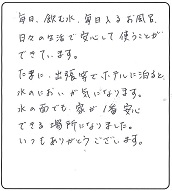 毎日、飲む水、毎日入るお風呂、
日々の生活で安心して使うことが
できています。
たまに、出張等でホテルに泊ると、
水のにおいが気になります。
水の面でも、家が1番安心
できる場所になりました。
いつもありがとうございます。